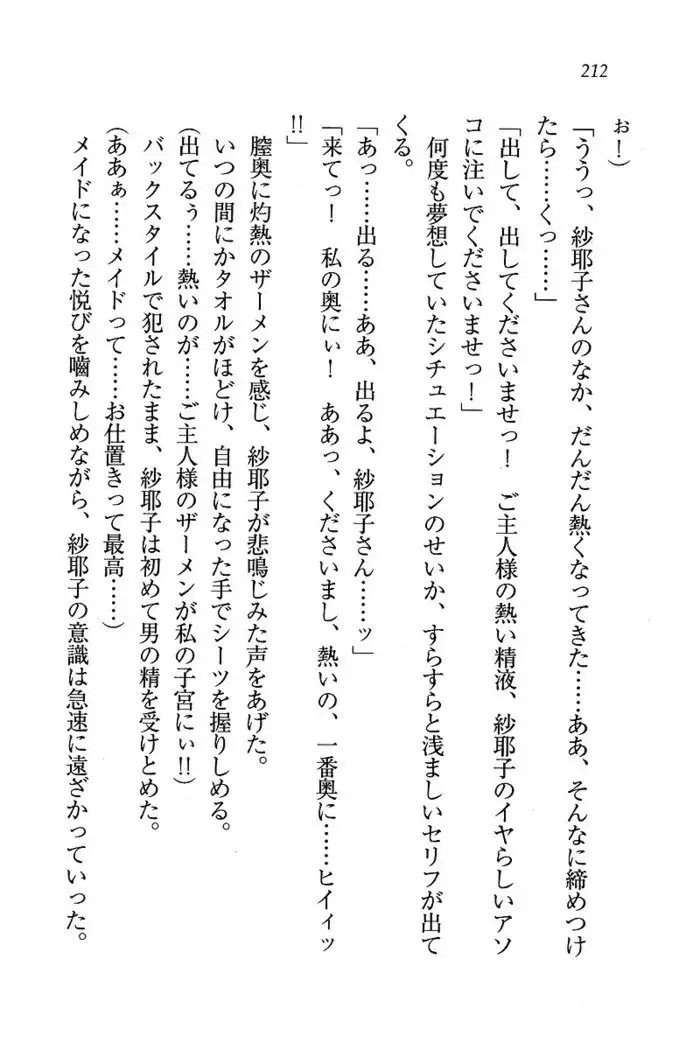 212
ぉ！）
「ううっ、紗耶子さんのなか、だんだん熱くなってきた……ああ、そんなに締めつけ
たら……くっ……」
「出して、出してくださいませっ！　ご主人様の熱い精液、紗耶子のイヤらしいアソ
コに注いでくださいませっ！」
何度も夢想していたシチュエーションのせいか、すらすらと浅ましいセリフが出て
くる。
「あっ……出る……ああ、出るよ、紗耶子さん……ッ」
「来てっ！　私の奥にぃ！　ああっ、くださいまし、熱いの、一番奥に……ヒイィッ
!!」
膣奥に灼熱のザーメンを感じ、紗耶子が悲鳴じみた声をあげた。
いつの間にかタオルがほどけ、自由になった手でシーツを握りしめる。
（出てるぅ……熱いのが……ご主人様のザーメンが私の子宮にぃ!!）
バックスタイルで犯されたまま、紗耶子は初めて男の精を受けとめた。
（ああぁ……メイドって……お仕置きって最高……）
メイドになった悦びを嚙みしめながら、紗耶子の意識は急速に遠ざかっていった。